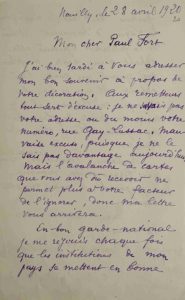 Neuilly, le 28 avril 1920
Mon cher Paul Fort
J'ai bien tardé à vous adresser
mon bon souvenir à propos de
votre décoration.
tout sert d'excuse : je ne savais pas
votre adresse ou du moins votre
numéro, rue Gay-Lussac. Mau
vaise excuse, puisque je ne le
sais pas davantage aujourd'hui
Mais l'avalanche de cartes
que vous avez dû recevoir ne
permet plus à votre facteur
de l'ignorer, donc ma lettre
vous arrivera.
En bon garde-national
je me réjouis chaque fois
que les institutions de mon
pays se mettent en bonne